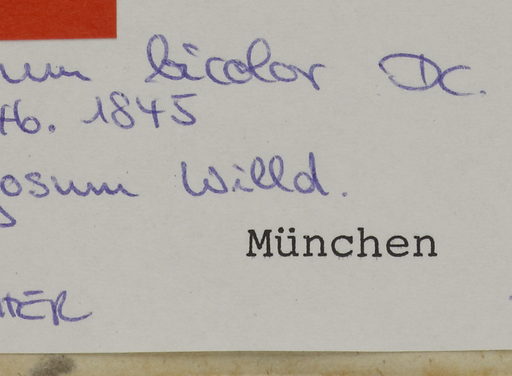 um bicolor DC.
Hb. 1845
osum Willd.
München
TER